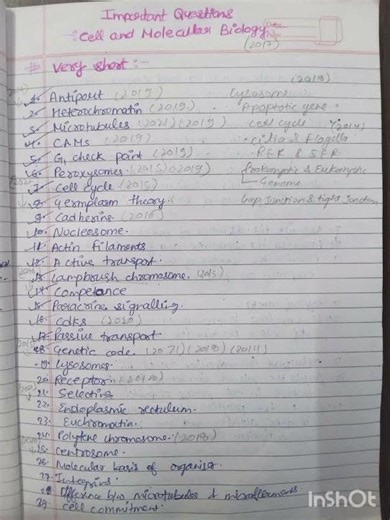 Important Questions
Cell and Molecular Biology
(2017)
Very short :-
(2018)
1. Antiport (2019) Lysosome
2. Heterochromatin (2019) Apoptotic gene
3. Microtubules (2021)(2019) Cell cycle (2014)
4. CAMs (2019) cilia & flagella
5. G1 check point (2019) RER & SER
6. Peroxysomes (2015)(2019) Prokaryotic & Eukaryotic
7. Cell cycle (2015) Genome
8. Germplasm theory Gap Junction & tight Junction
9. Cadherins (2016)
10. Nucleosome.
11. Actin filaments
12. Active transport.
13. Lampbrush chromosome.
14. Competance
15. Paracrine signalling.
16. Cdks (2020)
17. Passive transport
18. Genetic code. (2021)
19. Lysosomes.
20. Receptor
21. Selectins
22. Endoplasmic rectulum.
23. Euchromatin.
24. Polytene chromosome. (2018)
25. Centrosome.
26. Molecular basis of
27. Integrins
28. b/w microtubules &
29. cell commitment.
InShOt